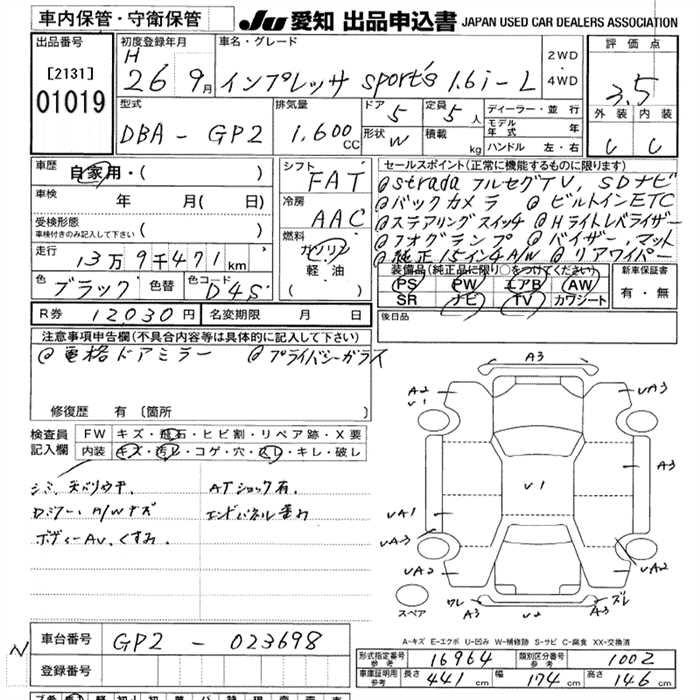 車内保管・守衛保管
JU 愛知 出品申込書 JAPAN USED CAR DEALERS ASSOCIATION
出品番号
[2131]
01019
初度登録年月
H
26 9月
車名・グレード
インプレッサ sport's 1.6i-L
2WD
・
4WD
評価点
3.5
外装 内装
型式
DBA - GP2
排気量
1,600 CC
ドア 5
形状 W
定員 5人
積載 kg
ディーラー・並行
モデル年式
ハンドル 左・右
車歴
自家用・( )
車検 年 月( 日)
受検形態
車検付きのみ記入して下さい ( )
走行
13万9千471km
色 ブラック
色替
色コード D4S
シフト
FAT
冷房
AAC
燃料
ガソリン
軽油
( )
セールスポイント(正常に機能するものに限ります)
@strada フルセグTV, SDナビ
@バックカメラ @ビルトインETC
@ステアリングスイッチ @Hライトレベライザー
@フオグランプ @バイザー,マット
@純正15インチA/W @リアワイパー
装備品(純正品に限り○をつけてください)
PS PW エアB AW
SR ナビ TV カワシート
新車保証書
有・無
後日品
R券 12,030円
名変期限 月 日
注意事項申告欄(不具合内容等は具体的に記入して下さい)
@電格ドアミラー @プライバシーガラス
修復歴 有 〔箇所
検査員記入欄
FW キズ・飛石・ヒビ割・リペア跡・X要
内装 キズ・汚レ・コゲ・穴・スレ・キレ・破レ
ATショック有.
ボディーAU,くすみ.
A3
A2
U1
UA3
A3
U1
UA1
UA3
UA2
UA2
ワレ
A3
U2
A3
ズレ
スペア
A-キズ E-エクボ U-凹み W-補修跡 S-サビ C-腐食 XX-交換済
車台番号 GP2 - 023698
登録番号
形式指定番号 参考 16964
類別区分番号 参考 1002
車庫証明用 参考 長さ 441cm 幅 174cm 高さ 146cm